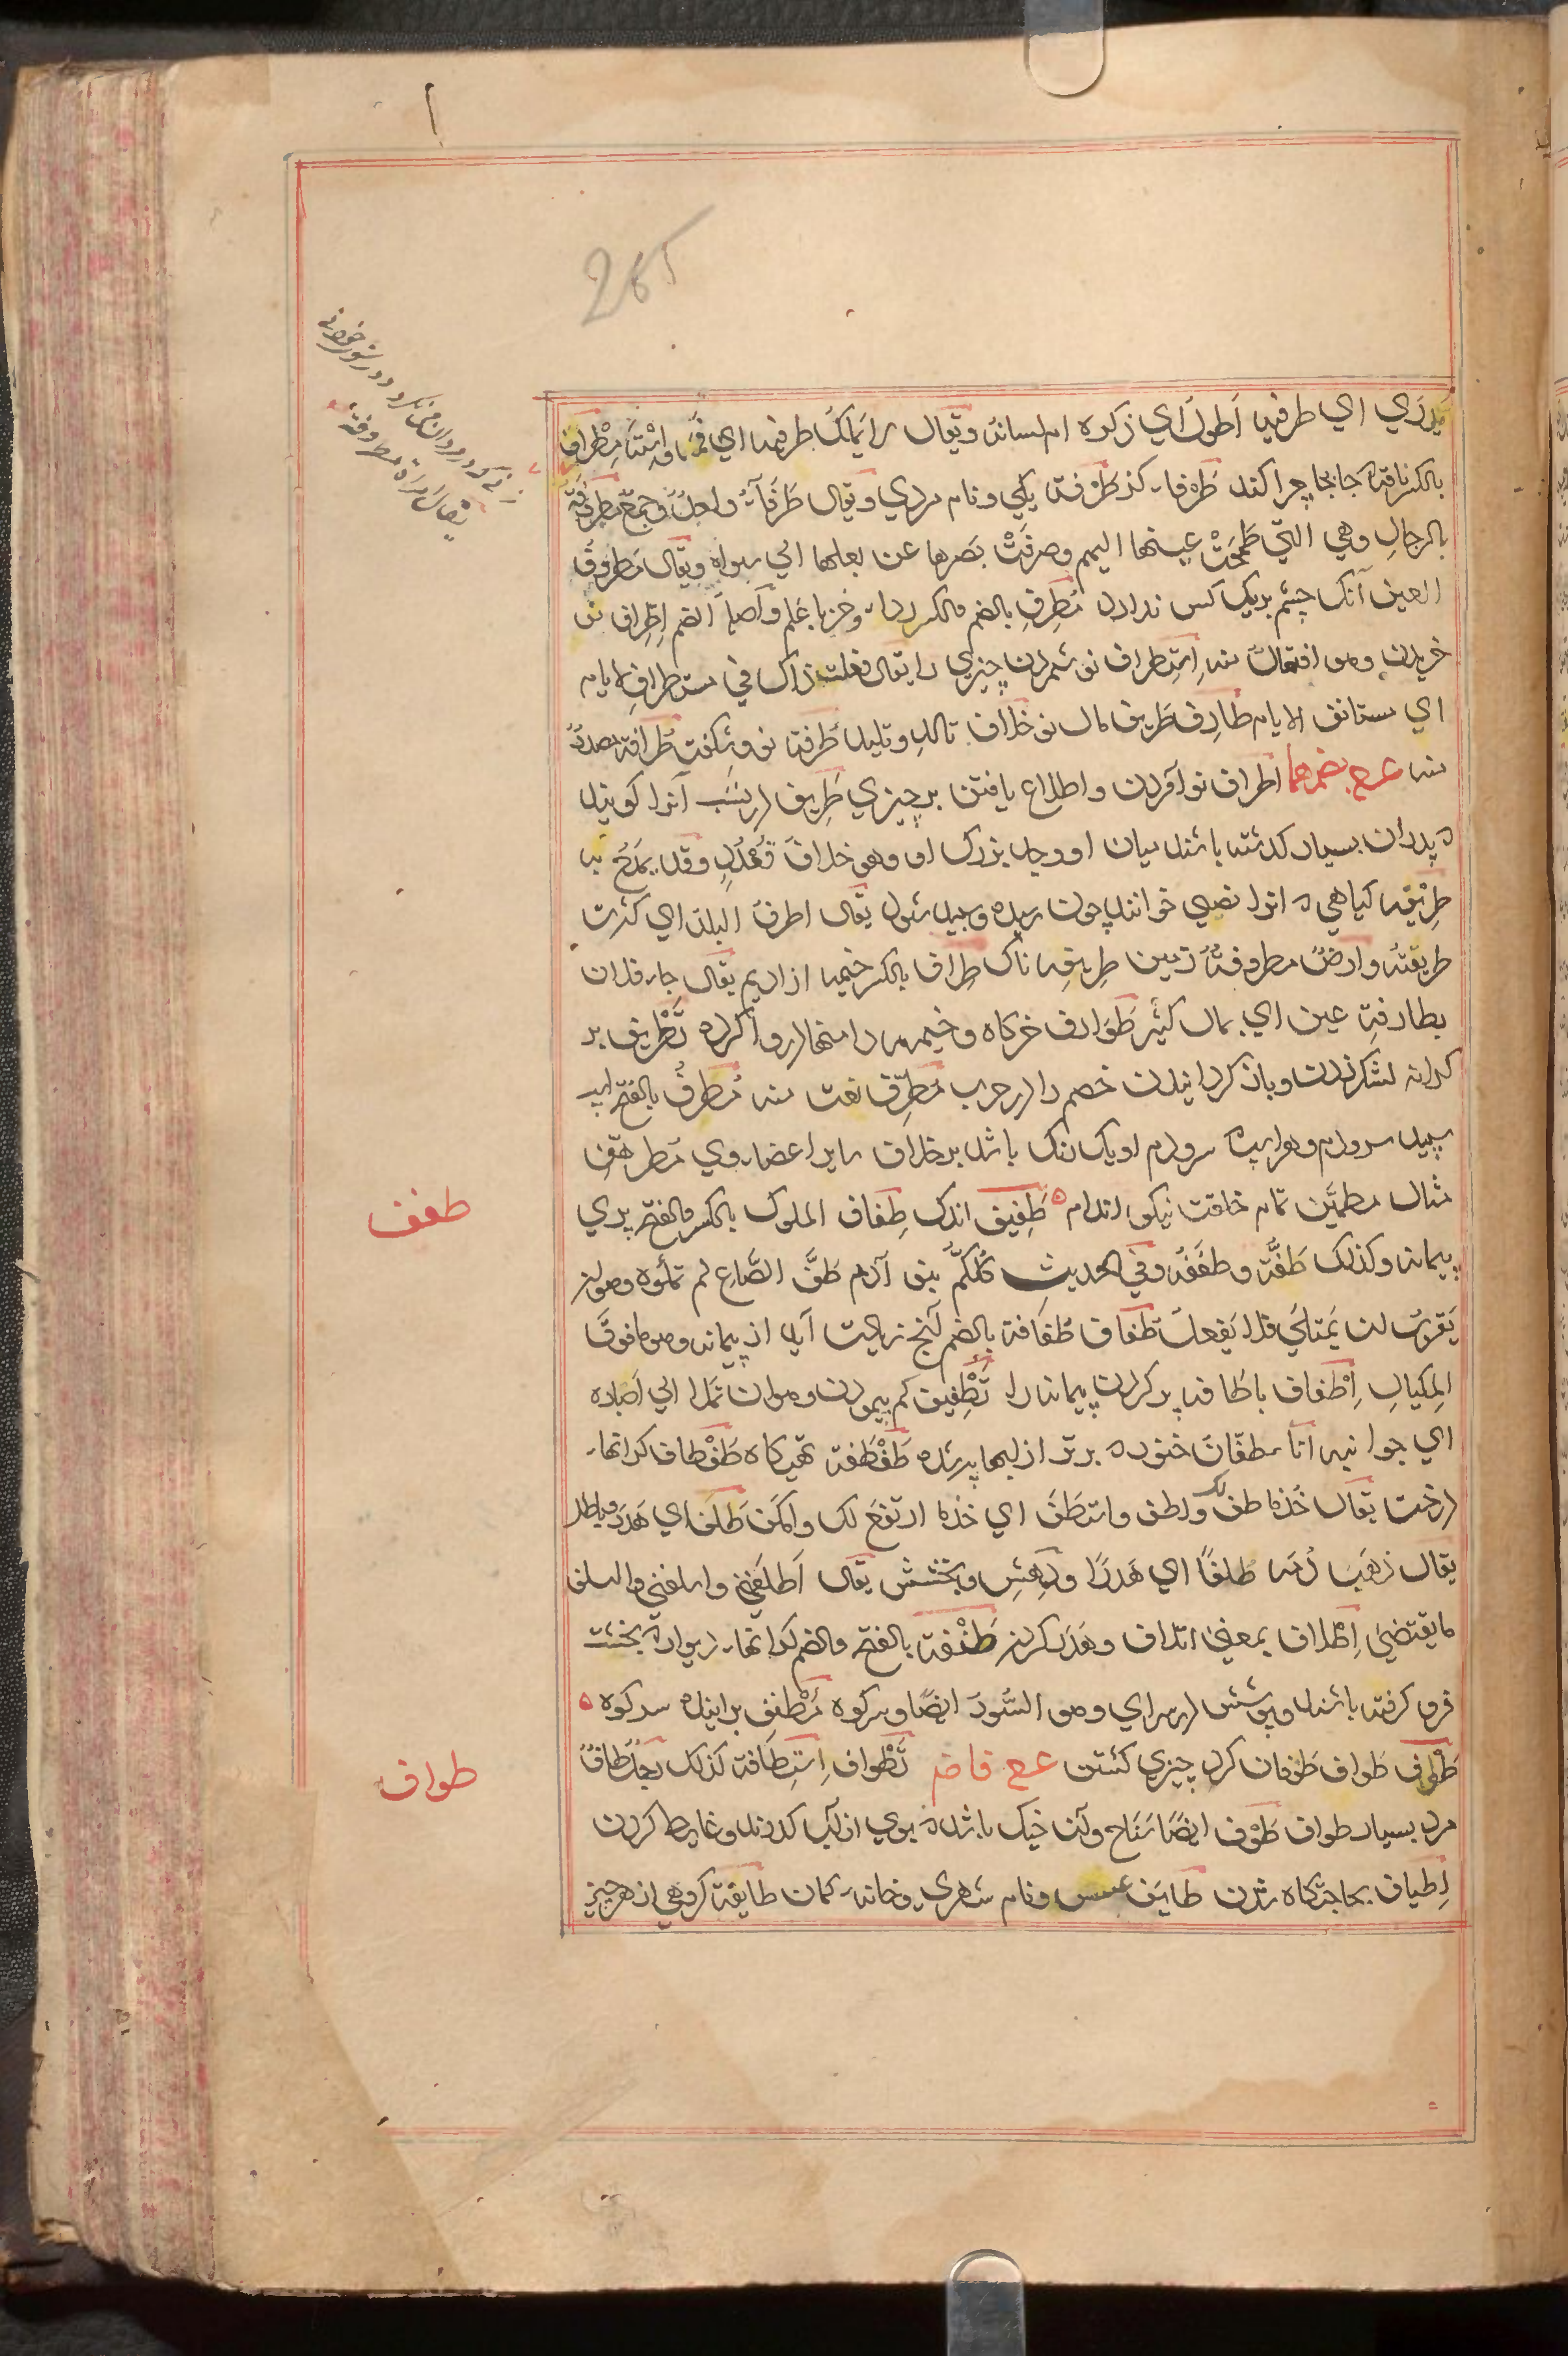 265
یدری ای طرفیه اطول ای ذکره ام لسانه ویقال لا یملک طرفیه ای فمه واسته مطراف
بالکسر ناقه که جابجا چرا کند طرفاء کز طرفة یکی ونام مردی ویقال طرفاء واحد وجمع مطروفة
بالرجال وهی التی طمحت عینها الیهم وصرفت بصرها عن بعلها الی سواه ویقال مطروف
العین آنک چشم بر یک کس ندارد مطرف بالضم والکسر رداء وخز با علم واصله الضم اطراف نو
خریدن وهو افتعال منه استطراف نو شمردن چیزی را یقال فعلت ذاک فی مستطرف الایام
ای مستانف الایام طارف طریف مال نو خلاف تالد وتلید طرفة نو وشکفت طرافة مصدر
منه ع ح بضمهما اطراف نو آوردن واطلاع یافتن بر چیزی طریف در نسب آنرا کویند
که پدران بسیار کذشته باشند میان او وجد بزرک او وهو خلاف قعدد وقد یمدح به
طریفه کیاهی که انرا نصی خوانند چون رسیده وسپید شود یقال اطرف البلد ای کثرت
طریفته وارض مطروفة زمین طریفه ناک طراف بالکسر خیمه از ادیم یقال جاء فلان
بطارفة عین ای بمال کثیر طوارف خرکاه وخیمه دامنها در وا کرده تطریف بر
کرانه لشکر زدن وباز کردانیدن خصم را در حرب مطرف نعت منه مطرف بالفتح اسپ
سپید سر ودم وهو اسپ که سر ودم او یک رنک باشد بر خلاف سایر اعضاء وی مطرهف
مثال مطمئن تمام خلقت نیکو اندام ه طفیف اندک طفاف الملوک بالکسر والفتح پری
طفف
پیمانه وکذلک طفه وطففه وفی الحدیث کلکم بنو آدم طف الصاع لم تملؤه وهو ان
یقرب ان یمتلی فلا یفعل طفاف طفافة بالضم آنچ زیادت آید از پیمانه وهو ما فوق
المکیال اطفاف با طفافه پر کردن پیمانه را تطفیف کم پیمودن وهو ان تملا الی اصباره
ای جوانبه اناء طفان خنوره بر تر از لبها پر شده طفطفة تهی کاه طفطاف کرانهاء
درخت یقال خذ ما طف لک واطف واستطف ای خذ ما ارتفع لک وامکن طلف ای هدر وباطل
یقال ذهب دمه طلفا ای هدرا ودهش وبخشش یقال اطلفنی واسلفنی والسلف
ما یقتضی اطلاف بمعنی اتلاف وهدر کردن طنف بالفتح والضم کرانهاء دیوار که بخشت
فرو کرفته باشند وپوشش در سرای وهو السود ایضا وسر کوه مطنف بر اینده سر کوه ه
طوف طواف طوفان کرد چیزی کشتن ع ح فاض تطواف استطافة کذلک رجل طاف
طواف
مرد بسیار طواف طوف ایضا مناح وآن خیک باشد که بوی از آب کذرند وغایط کردن
اطیاف بحاجتکاه شدن طایف عسس ونام شهری وخانه کمان طایفة کروهی از هر چیز